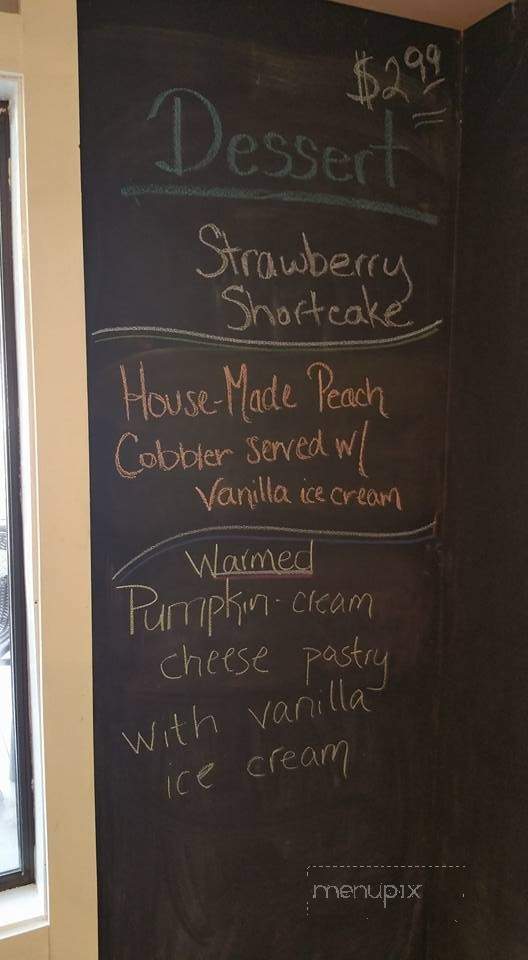 $2.99
Dessert
Strawberry
Shortcake
House-Made Peach
Cobbler served w/
vanilla ice cream
Warmed
Pumpkin-cream
cheese pastry
with vanilla
ice cream
menupix